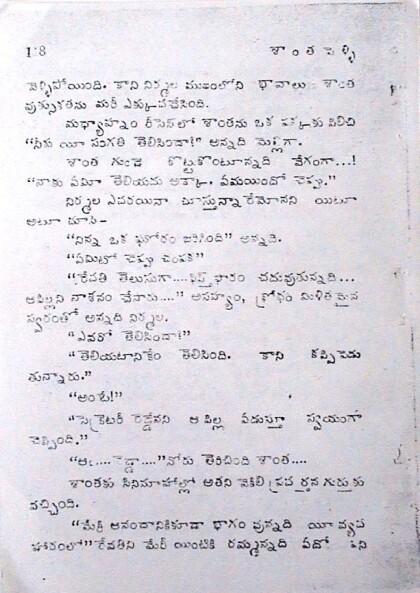 118 శాంత పెళ్ళి
వెళ్ళిపోయింది. కాని నిర్మల ముఖంలోని భావాలు శాంత
వుత్సుకతను మరీ ఎక్కువచేసింది.
మధ్యాహ్నం రీసెస్‌లో శాంతను ఒక పక్కకు పిలిచి
“నీకు యీ సంగతి తెలిసిందా!” అన్నది మెల్లిగా.
శాంత గుండె కొట్టుకొంటూన్నది వేగంగా...!
“నాకు ఏమీ తెలియదు అక్కా. ఏమయిందో చెప్పు.”
నిర్మల ఎవరయినా చూస్తున్నారేమోనని యిటూ
అటూ చూసి-
“నిన్న ఒక ఘోరం జరిగింది” అన్నది.
“ఏమిటో చెప్పు చంపక”
“రేవతి తెలుసుగా....ఫిఫ్త్ ఫారం చదువుతున్నది...
ఆపిల్లని నాశనం చేసారు....” అసహ్యం, క్రోధం మిళితమైన
స్వరంతో అన్నది నిర్మల.
“ఎవరో తెలిసిందా!”
“తెలియటానికేం తెలిసింది. కాని కప్పిపెడు
తున్నారు.”
“అంటే!”
“సెక్రెటరీ రెడ్డేనని ఆ పిల్ల ఏడుస్తూ స్వయంగా
చెప్పింది.”
“ఆఁ....రెడ్డా....”నోరు తెరిచింది శాంత....
శాంతకు సినిమాహాల్లో అతని వెకిలి ప్రవర్తన గుర్తుకు
వచ్చింది.
“మేరీ ఆనందానికికూడా భాగం వున్నది యీ వ్యవ
హారంలో”రేవతిని మేరీ యింటికి రమ్మన్నది ఏదో పని